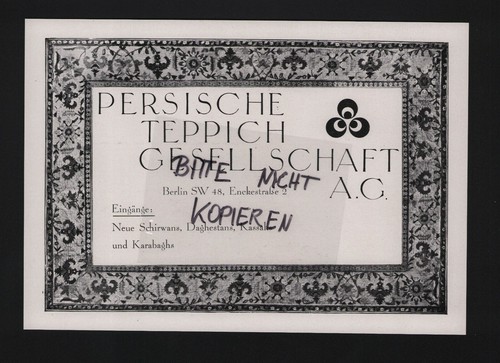 PERSISCHE
TEPPICH
GESELLSCHAFT
A.G.
BITTE NICHT
Berlin SW 48, Enckestraße 2
KOPIEREN
Eingänge:
Neue Schirwans, Daghestans, Kassak
und Karabaghs